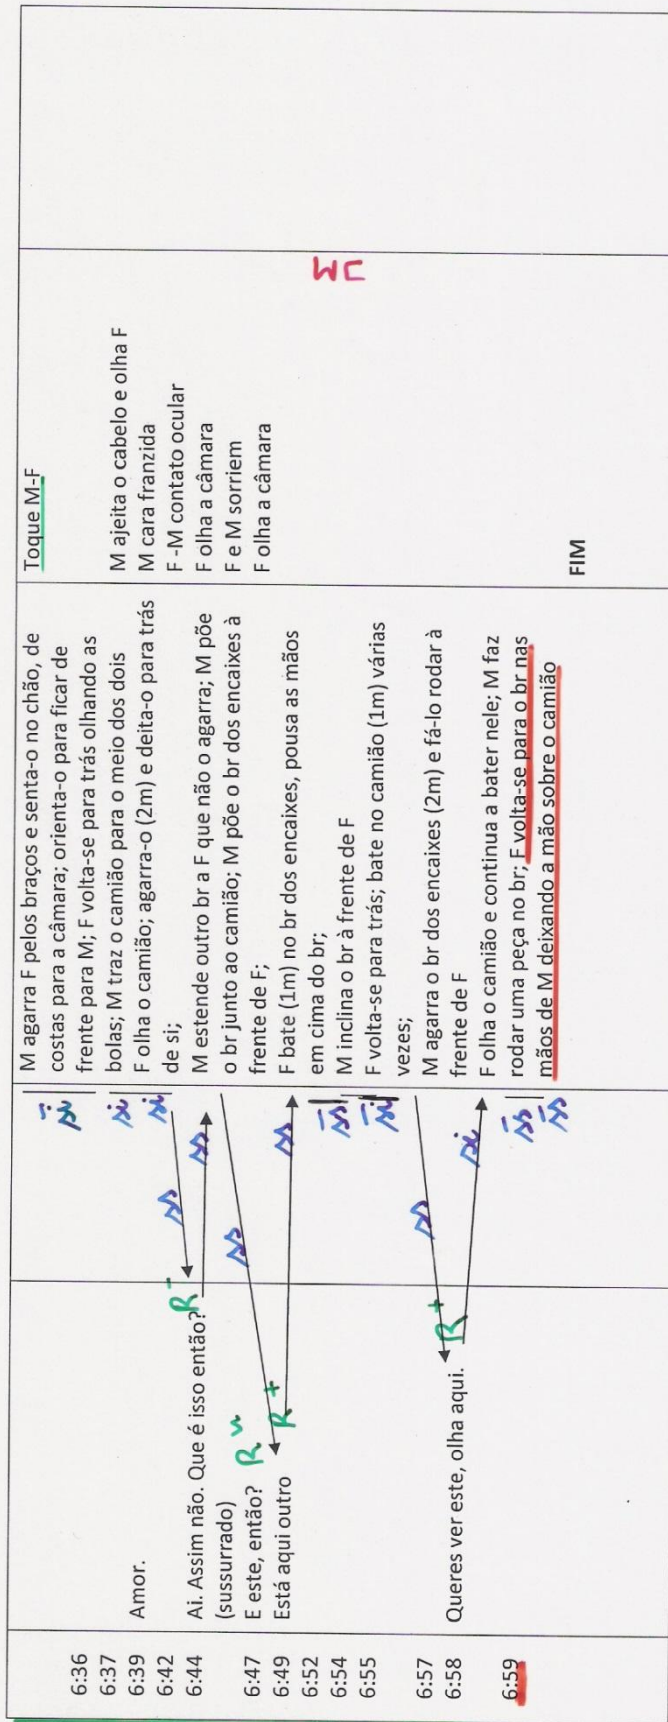 6:36
6:37
6:39
6:42
6:44
6:47
6:49
6:52
6:54
6:55
6:57
6:58
6:59
Amor.
Ai. Assim não. Que é isso então? R-
(sussurrado)
E este, então? R
Está aqui outro R+
Queres ver este, olha aqui. R+
si
si
si
ss
ss
ss
ss
ss
si
ss
si
ss
ss
M agarra F pelos braços e senta-o no chão, de
costas para a câmara; orienta-o para ficar de
frente para M; F volta-se para trás olhando as
bolas; M traz o camião para o meio dos dois
F olha o camião; agarra-o (2m) e deita-o para trás
de si;
M estende outro br a F que não o agarra; M põe
o br junto ao camião; M põe o br dos encaixes à
frente de F;
F bate (1m) no br dos encaixes, pousa as mãos
em cima do br;
M inclina o br à frente de F
F volta-se para trás; bate no camião (1m) várias
vezes;
M agarra o br dos encaixes (2m) e fá-lo rodar à
frente de F
F olha o camião e continua a bater nele; M faz
rodar uma peça no br; F volta-se para o br nas
mãos de M deixando a mão sobre o camião
Toque M-F
M ajeita o cabelo e olha F
M cara franzida
F -M contato ocular
F olha a câmara
F e M sorriem
F olha a câmara
FIM